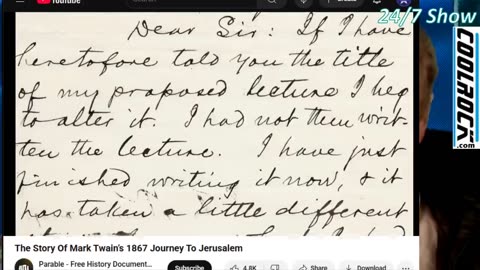 YouTube
24/7 Show
COOLROCK.com
Dear Sir: If I have
heretofore told you the title
of my proposed lecture I beg
to alter it. I had not then writ-
ten the lecture. I have just
finished writing it now, & it
has taken a little different
The Story Of Mark Twain's 1867 Journey To Jerusalem
Parable - Free History Document...
Subscribe
4.8K
Share
Download